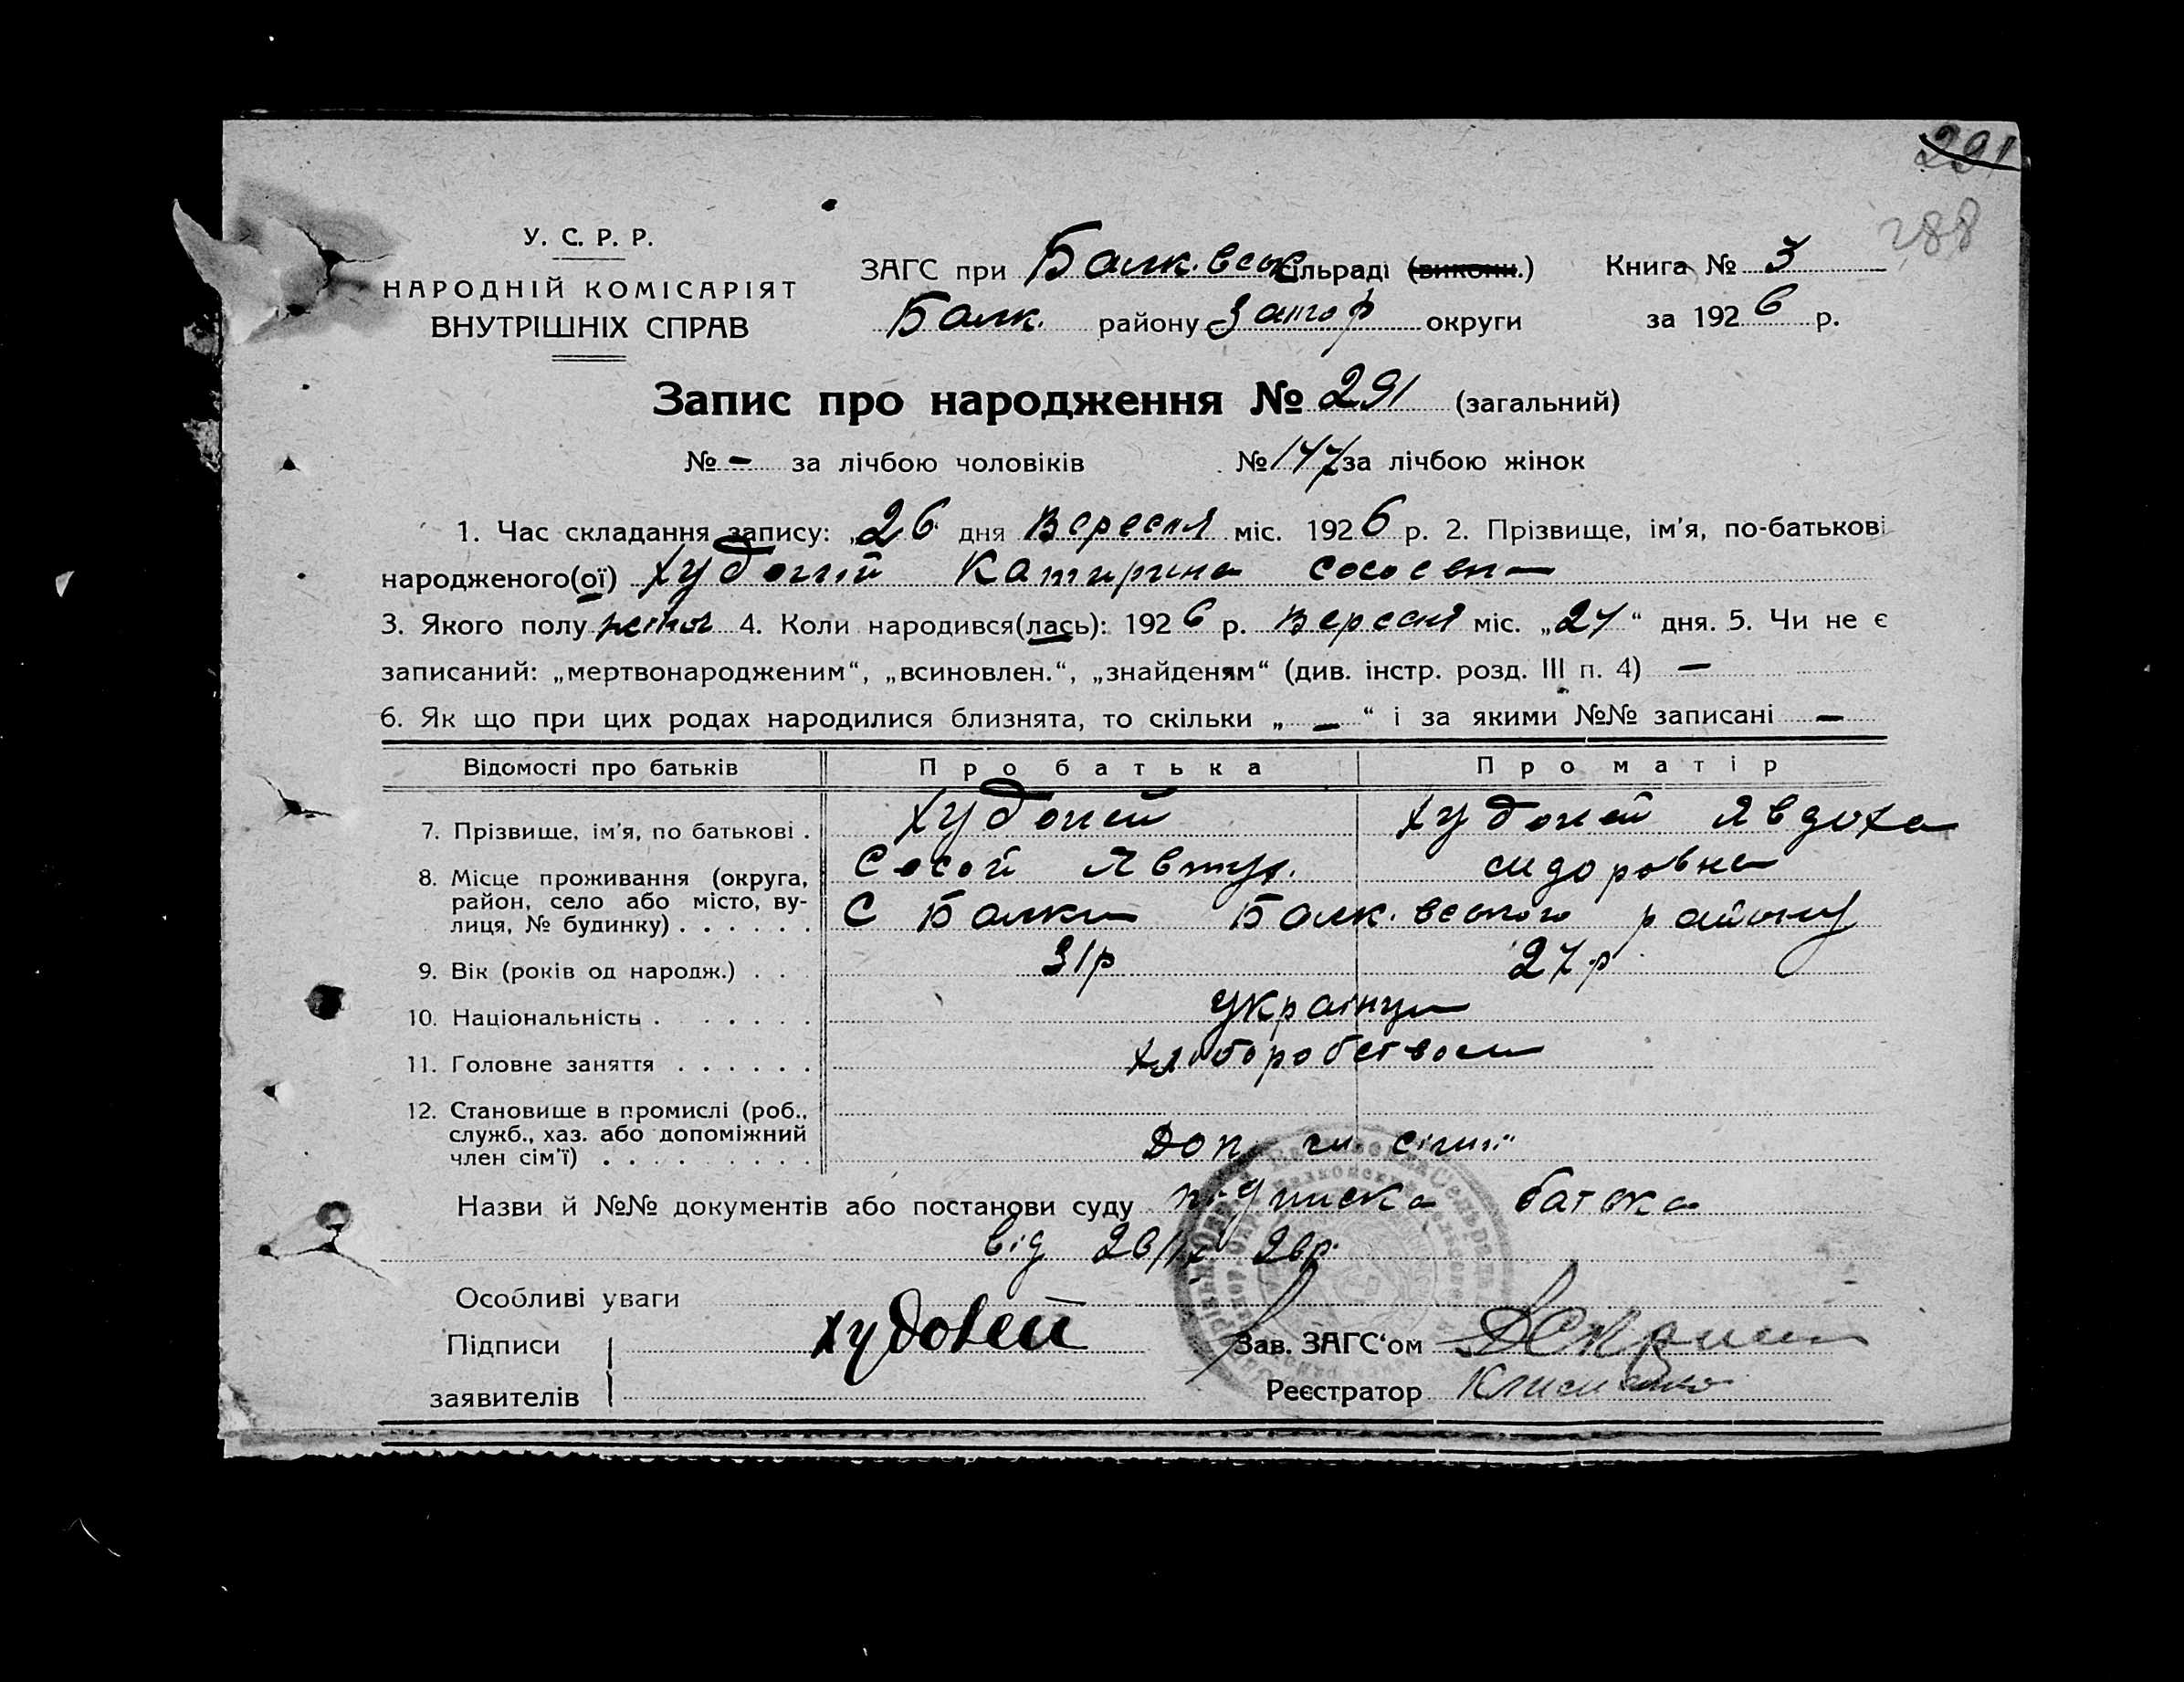 291
288
У. С. Р. Р.
НАРОДНІЙ КОМІСАРІЯТ
ВНУТРІШНІХ СПРАВ
ЗАГС при Балк.вськ сільраді (виконк.) Книга № 3
Балк. району Запор округи за 1926 р.
Запис про народження № 291 (загальний)
№ – за лічбою чоловіків № 147 за лічбою жінок
1. Час складання запису: „26 дня Вересня міс. 1926 р. 2. Прізвище, ім'я, по-батькові
народженого(ої) Худоний Катирина
3. Якого полу жіноч 4. Коли народився(лась): 1926 р. Вересня міс. „27“ дня. 5. Чи не є
записаний: „мертвонародженим“, „всиновлен.“, „знайденям“ (див. інстр. розд. III п. 4) –
6. Як що при цих родах народилися близнята, то скільки „ – “ і за якими №№ записані –
Відомості про батьків Про батька Про матір
7. Прізвище, ім'я, по батькові . Худоней Худоней Явдоха
Сосой Явтух. сидоровна
8. Місце проживання (округа,
район, село або місто, ву-
лиця, № будинку) . . . . . . С Балки Балк.вського району
9. Вік (років од народж.) . . 31р 27р
10. Національність . . . . . . українци
11. Головне заняття . . . . . . хліборобством
12. Становище в промислі (роб.,
служб., хаз. або допоміжний
член сім'ї) . . . . . . . . . Доп чл. сімії
Назви й №№ документів або постанови суду підписка батька
від 26/IX 26р.
Особливі уваги
Підписи Худоней Зав. ЗАГС'ом
заявителів Реєстратор Клименко